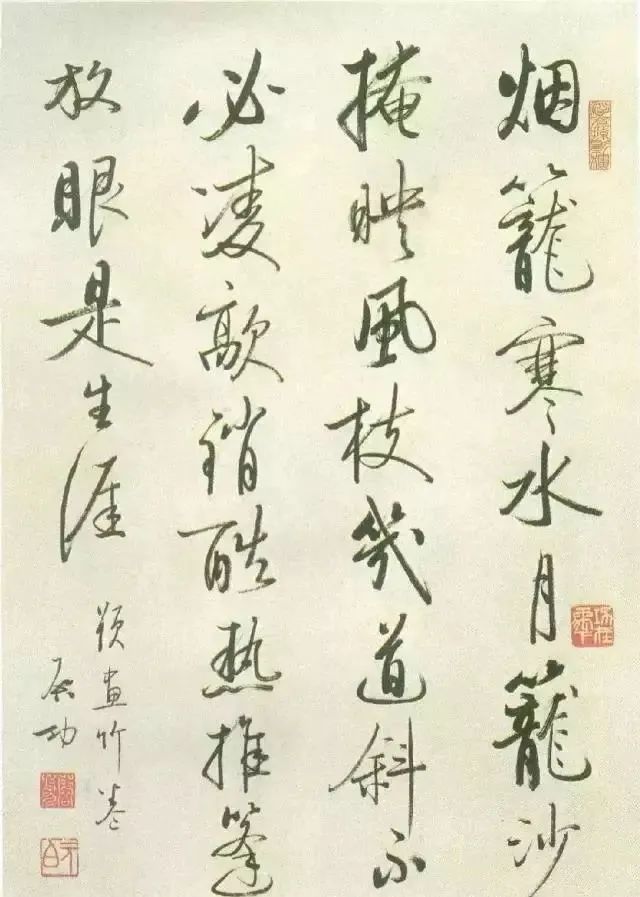 烟籠寒水月籠沙
掩映風枝幾道斜不
必凌歊銷酷熱推篷
放眼是生涯
題畫竹卷
啓功
元白